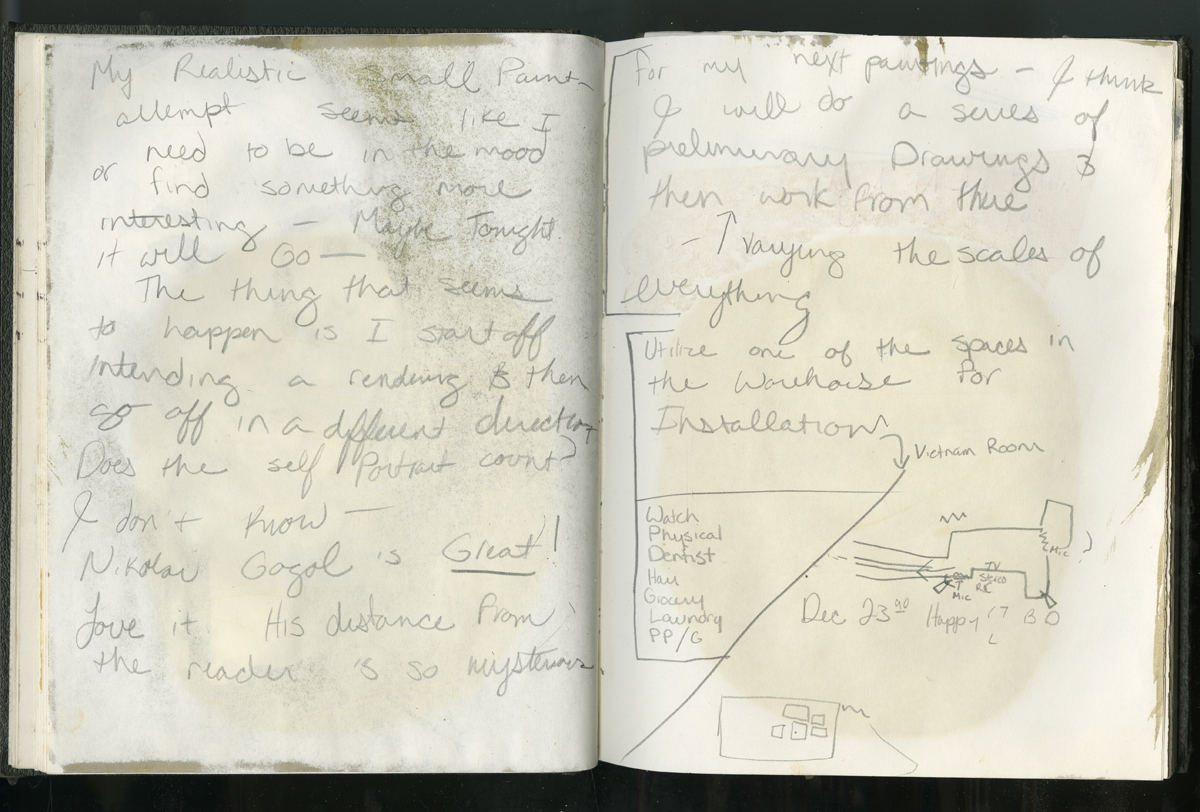 My Realistic small Paint-
attempt seems like I
need to be in the mood
or find something more
interesting — Maybe Tonight.
it will Go —
The thing that seems
to happen is I start off
intending a rendering & then
go off in a different direction
Does the self Portrait count?
I don't know —
Nikolai Gogol is Great!
Love it. His distance from
the reader is so mysterious
For my next paintings — I think
I will do a series of
preliminary Drawings &
then work from there
— ↑ varying the scales of
everything
Utilize one of the spaces in
the Warehouse for
Installation
Vietnam Room
Watch
Physical
Dentist
Hair
Grocery
Laundry
PP/G
Mic
TV
Mic
Dec 23 90 Happy 17 B D
L